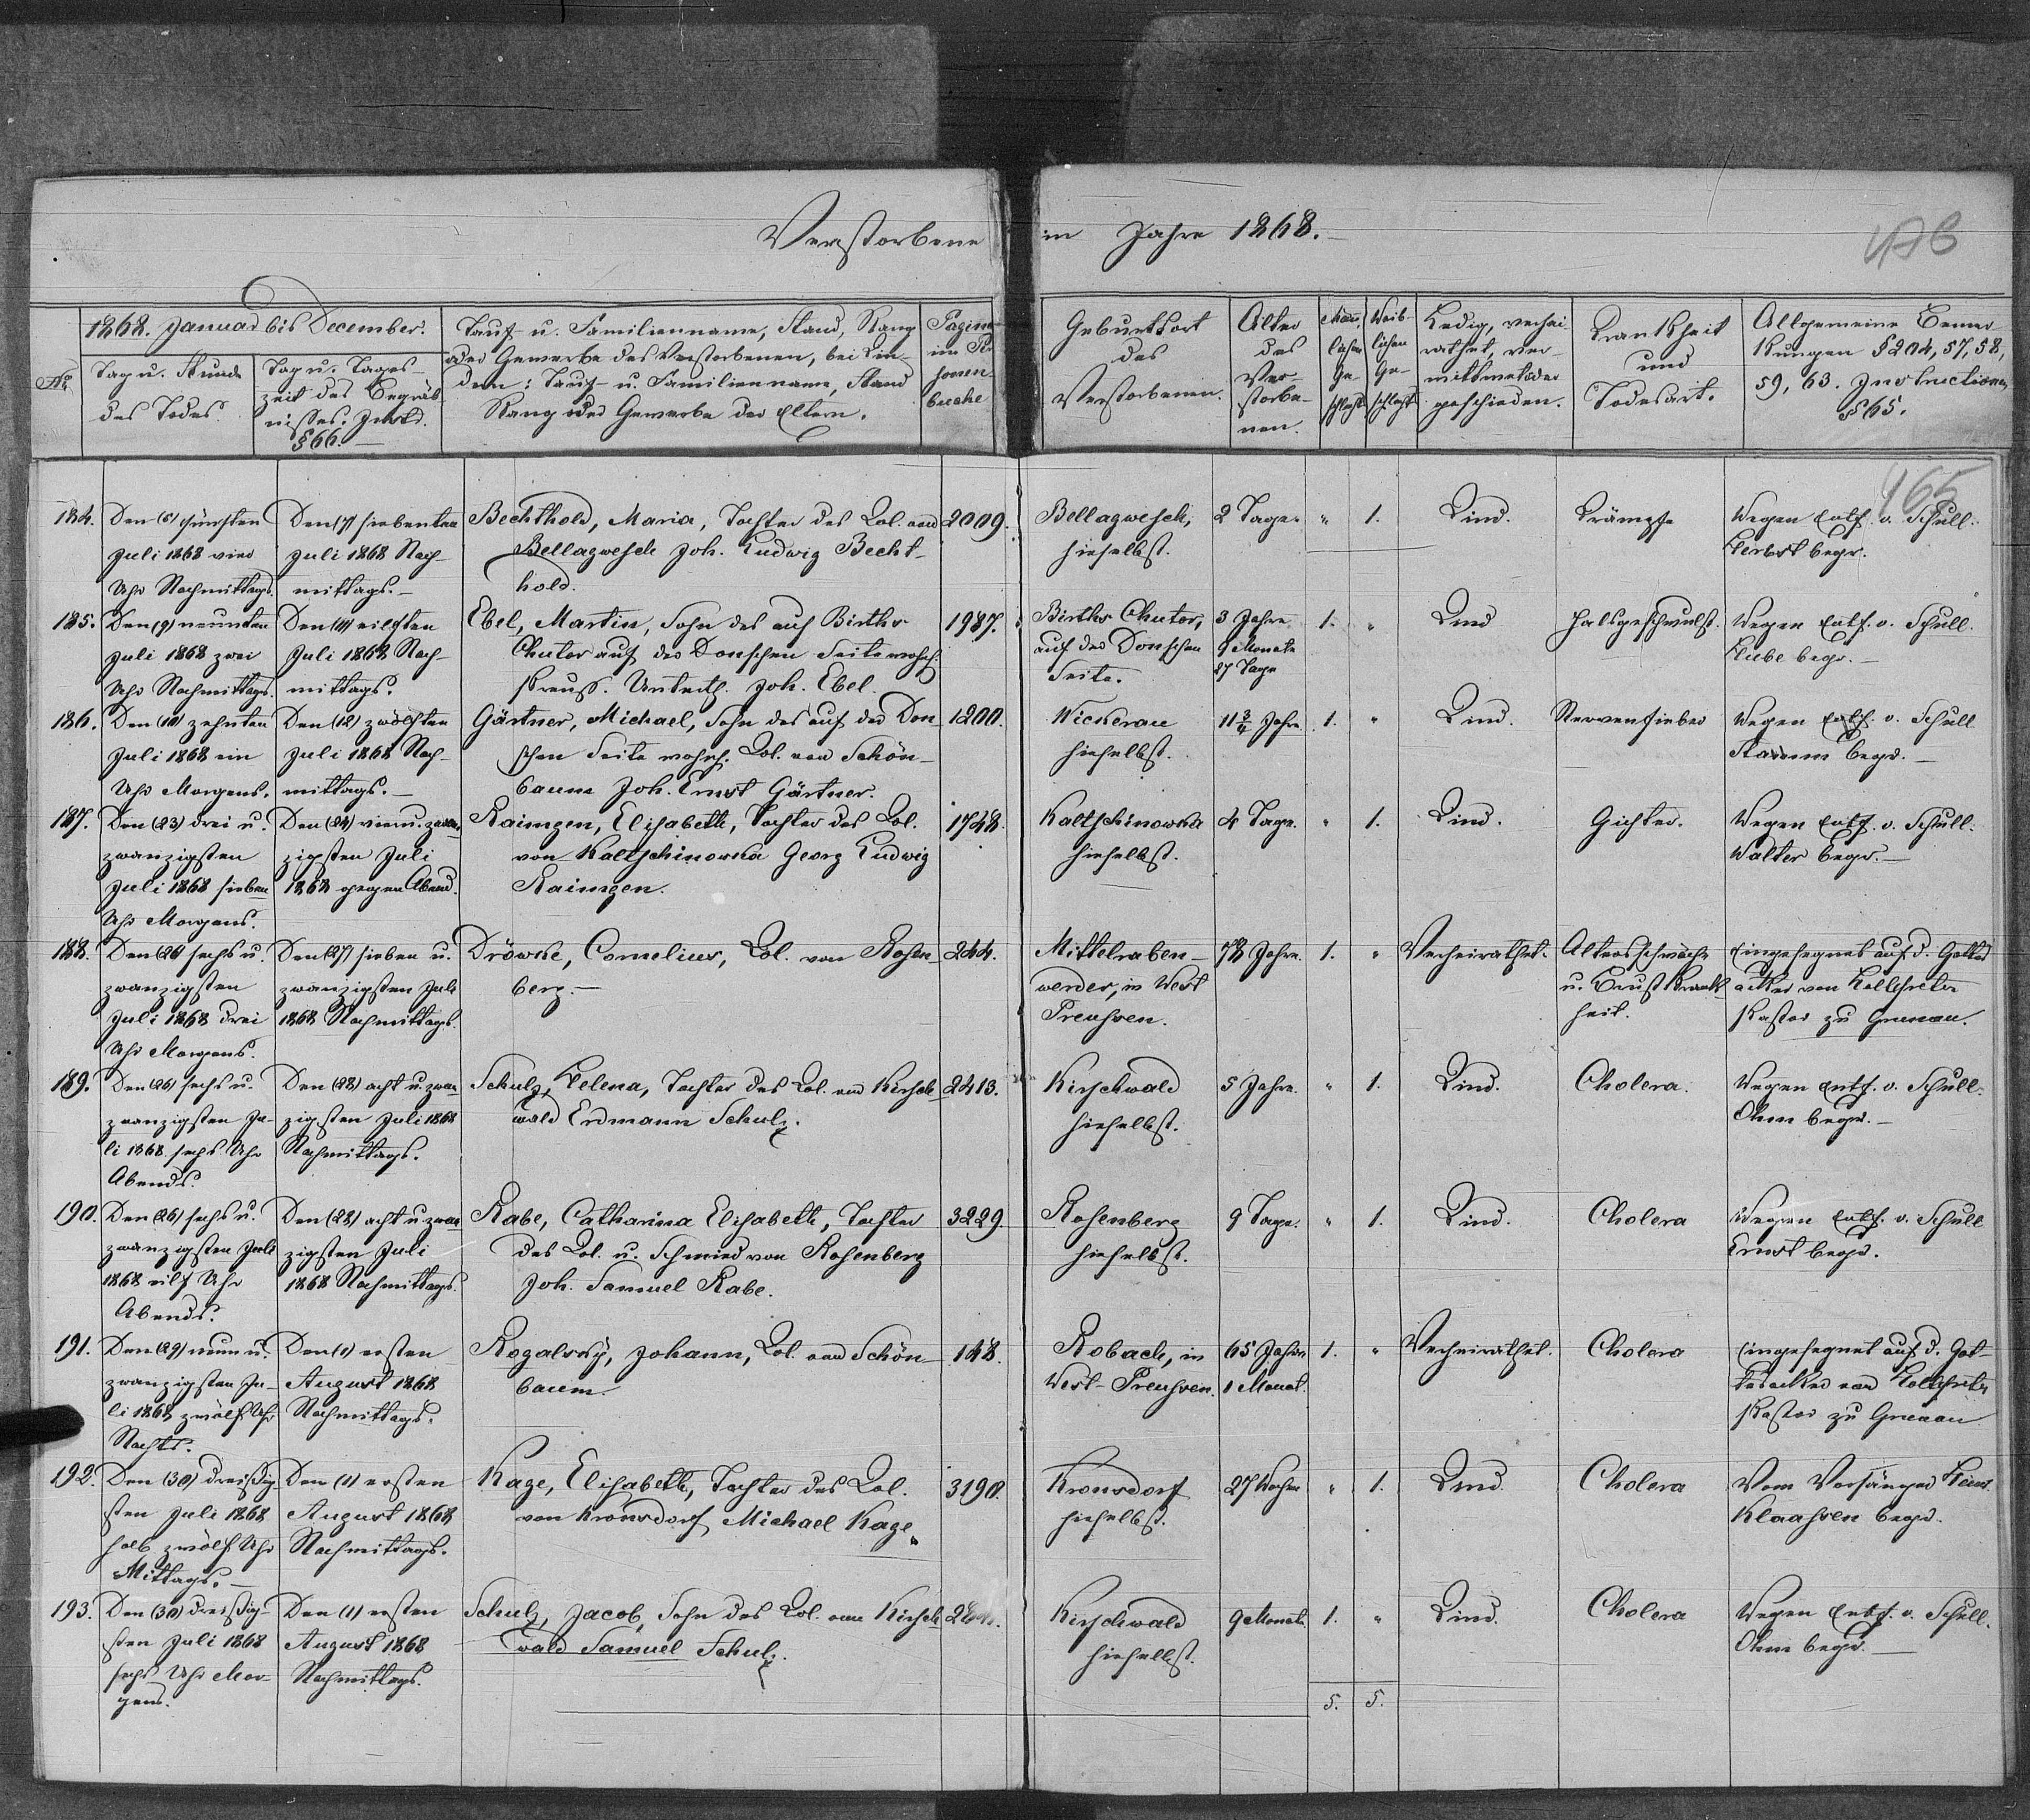 Verstorbene im Jahre 1868.
1868. Januar bis December.
No
Tag u. Stunde
des Todes.
Tag u. Tages-
zeit des Begräb-
nisses. Instr.
§ 66.
Tauf- u. Familienname, Stand, Rang
oder Gewerbe des Verstorbenen, bei Kin-
dern: Tauf- u. Familienname, Stand
Rang oder Gewerbe der Eltern.
Pagina
im Per-
sonen-
buche
Geburtsort
des
Verstorbenen.
Alter
des
Ver-
storbe-
nen.
Männ-
lichen
Ge-
schlechts
Weib-
lichen
Ge-
schlechts
Ledig, verhei-
rathet, ver-
wittwet oder
geschieden.
Krankheit
und
Todesart.
Allgemeine Bemer-
kungen § 204, 57, 58,
59, 63. Instruction
§ 65.
465
184.
Den (5) fünften
Juli 1868 vier
Uhr Nachmittags.
Den (7) siebenten
Juli 1868 Nach-
mittags.
Bechthold, Maria, Tochter des Col. von
Bellagwesch Joh. Ludwig Becht-
hold.
2009.
Bellagwesch,
hieselbst.
2 Tage.
" 1.
Kind.
Krämpfe
Wegen Entf. v. Schull.
Herbst begr.
185.
Den (9) neunten
Juli 1868 zwei
Uhr Nachmittags.
Den (11) eilften
Juli 1868 Nach-
mittags.
Ebel, Martin, Sohn des auf Births-
Chutor auf der Donschen Seite wohnh.
Preuss. Unterth. Joh. Ebel.
1987.
Births Chutor,
auf der Donschen
Seite.
3 Jahre
9 Monate
27 Tage
1. "
Kind
Halsgeschwulst.
Wegen Entf. v. Schull.
Liebe begr.
186.
Den (10) zehnten
Juli 1868 ein
Uhr Morgens.
Den (12) zwölften
Juli 1868 Nach-
mittags.
Gärtner, Michael, Sohn des auf der Don-
schen Seite wohnh. Col. von Schön-
baum Joh. Ernst Gärtner.
1200.
Wickerau
hieselbst.
11 3/4 Jahre
1. "
Kind.
Nervenfieber
Wegen Entf. v. Schull
Stamm begr.
187.
Den (23) drei u.
zwanzigsten
Juli 1868 sieben
Uhr Morgens.
Den (24) vier u. zwan-
zigsten Juli
1868 gegen Abend.
Raimgen, Elisabeth, Tochter des Col.
von Kaltschinowka Georg Ludwig
Raimgen.
1748.
Kaltschinowka
hieselbst.
4 Tage.
" 1.
Kind.
Gichter.
Wegen Entf. v. Schull.
Walter begr.
188.
Den (26) sechs u.
zwanzigsten
Juli 1868 drei
Uhr Morgens.
Den (27) sieben u.
zwanzigsten Juli
1868 Nachmittags.
Dröwke, Cornelius, Col. von Rosen-
berg.
244.
Mittelraben-
werder, in West
Preussen.
78 Jahre.
1. "
Verheirathet.
Altersschwäche
u. Brustkrank-
heit.
Eingesegnet auf d. Gottes
acker von
Pastor zu Grunau.
189.
Den (26) sechs u.
zwanzigsten Ju-
li 1868 sechs Uhr
Abends.
Den (28) acht u. zwan-
zigsten Juli 1868
Nachmittags.
Schulz, Helena, Tochter des Col. von Kirsch-
wald Erdmann Schulz.
2413.
Kirschwald
hieselbst.
5 Jahre.
" 1.
Kind.
Cholera.
Wegen Entf. v. Schull.
Ohm begr.
190.
Den (26) sechs u.
zwanzigsten Juli
1868 eilf Uhr
Abends.
Den (28) acht u. zwan
zigsten Juli
1868 Nachmittags.
Rabe, Catharina Elisabeth, Tochter
des Col. u. Schmied von Rosenberg
Joh. Samuel Rabe.
3229.
Rosenberg
hieselbst.
9 Tage.
" 1.
Kind.
Cholera
Wegen Entf. v. Schull
Ernst begr.
191.
Den (29) neun u.
zwanzigsten Ju-
li 1868 zwölf Uhr
Nachts.
Den (1) ersten
August 1868
Nachmittags.
Rogalsky, Johann, Col. von Schön-
baum.
148.
Robach, in
West-Preussen.
65 Jahre
1 Monat.
1. "
Verheirathet.
Cholera
Eingesegnet auf d. Got-
tesacker von
Pastor zu Grunau
192.
Den (30) dreissig-
sten Juli 1868
halb zwölf Uhr
Mittags.
Den (1) ersten
August 1868
Nachmittags.
Kage, Elisabeth, Tochter des Col.
von Kronsdorf Michael Kage.
3190.
Kronsdorf
hieselbst.
27 Wochen
" 1.
Kind
Cholera
Vom Vorsänger Heinr.
Klaassen begr.
193.
Den (30) dreissig-
sten Juli 1868
sechs Uhr Mor-
gens.
Den (1) ersten
August 1868
Nachmittags.
Schulz, Jacob, Sohn des Col. von Kirsch-
wald Samuel Schulz.
Kirschwald
hieselbst.
9 Monate
1. "
Kind.
Cholera
Wegen Entf. v. Schull.
Ohm begr.
5. 5.